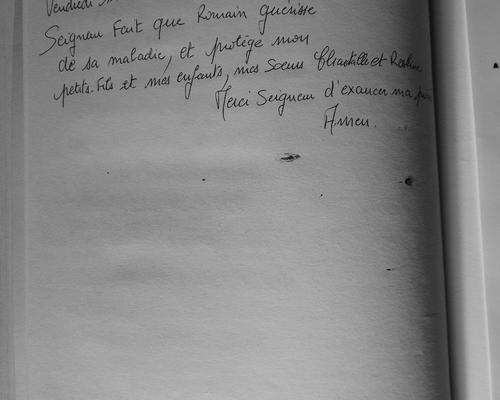 Vendredi
Seigneur Fait que Romain guérisse
de sa maladie, et protège mon
petits. Fils et mes enfants, mes Soeurs Chantalle et
Merci Seigneur d'exaucer ma
Amen.